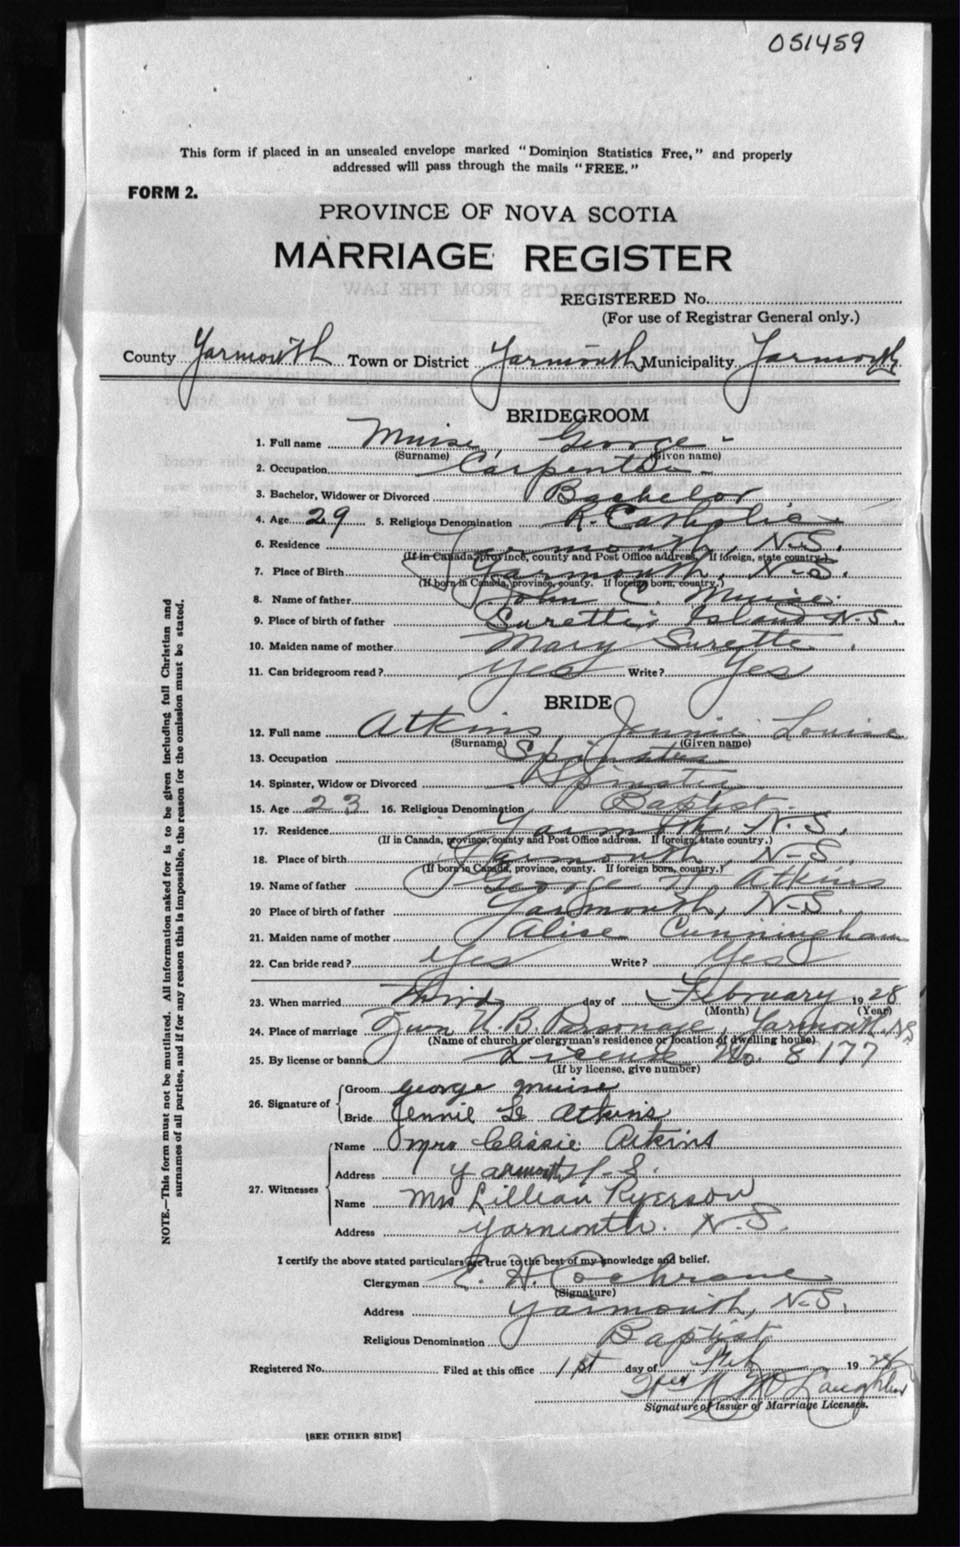 051459
This form if placed in an unsealed envelope marked "Dominion Statistics Free," and properly
addressed will pass through the mails "FREE."
FORM 2.
PROVINCE OF NOVA SCOTIA
MARRIAGE REGISTER
REGISTERED No.
(For use of Registrar General only.)
County Yarmouth Town or District Yarmouth Municipality Yarmouth
BRIDEGROOM
1. Full name Muise George
(Surname) (Given name)
2. Occupation Carpenter
3. Bachelor, Widower or Divorced Bachelor
4. Age 29 5. Religious Denomination R. Catholic
6. Residence Yarmouth, N.S.
(If in Canada, province, county and Post Office address. If foreign, state country.)
7. Place of Birth Yarmouth, N-S.
(If born in Canada, province, county. If foreign born, country.)
8. Name of father John C. Muise
9. Place of birth of father Surette's Island N.S.
10. Maiden name of mother Mary Surette
11. Can bridegroom read? Yes Write? Yes
BRIDE
12. Full name Atkins Jennie Louise
(Surname) (Given name)
13. Occupation Spinster
14. Spinster, Widow or Divorced Spinster
15. Age 23 16. Religious Denomination Baptist
17. Residence Yarmouth, N.S.
(If in Canada, province, county and Post Office address. If foreign, state country.)
18. Place of birth Yarmouth, N-S.
(If born in Canada, province, county. If foreign born, country.)
19. Name of father George Atkins
20 Place of birth of father Yarmouth, N.S.
21. Maiden name of mother Alice Cunningham
22. Can bride read? Yes Write? Yes
23. When married Third day of February 1928
(Month) (Year)
24. Place of marriage U.B. Parsonage, Yarmouth, N.S.
(Name of church or clergyman's residence or location of dwelling house)
25. By license or banns License No. 8177
(If by license, give number)
26. Signature of
Groom George Muise
Bride Jennie L Atkins
27. Witnesses
Name Mrs Clissie Atkins
Address Yarmouth N.S.
Name Mrs Lillian Ryerson
Address Yarmouth. N.S.
I certify the above stated particulars are true to the best of my knowledge and belief.
Clergyman E. H. Cochrane
(Signature)
Address Yarmouth, N-S.
Religious Denomination Baptist
Registered No. Filed at this office 1st day of Feb 1928
Signature of Issuer of Marriage Licenses.
[SEE OTHER SIDE]
NOTE.—This form must not be mutilated. All information asked for is to be given including full Christian and
surnames of all parties, and if for any reason this is impossible, the reason for the omission must be stated.